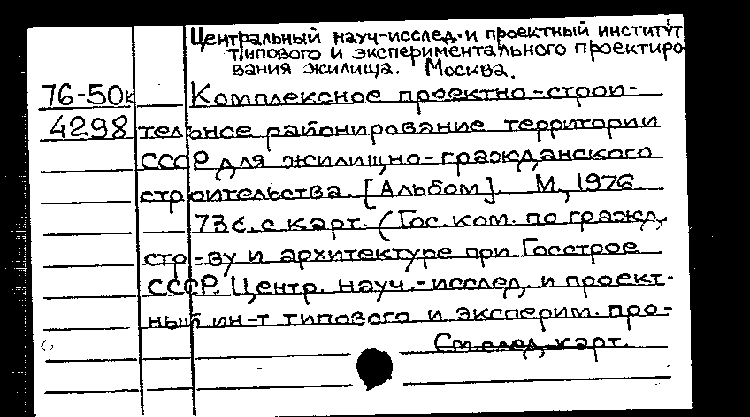 Центральный науч-исслед. и проектный институт
типового и экспериментального проектиро
вания жилища. Москва.
76-50к Комплексное проектно-строи-
4298 тельное районирование территории
СССР для жилищно-гражданского
строительства. [Альбом]. М., 1976
73 с. с карт. (Гос. ком. по гражд.
стр-ву и архитектуре при Госстрое
СССР. Центр. науч.-исслед. и проект-
ный ин-т типового и эксперим. про-
См. след. карт.